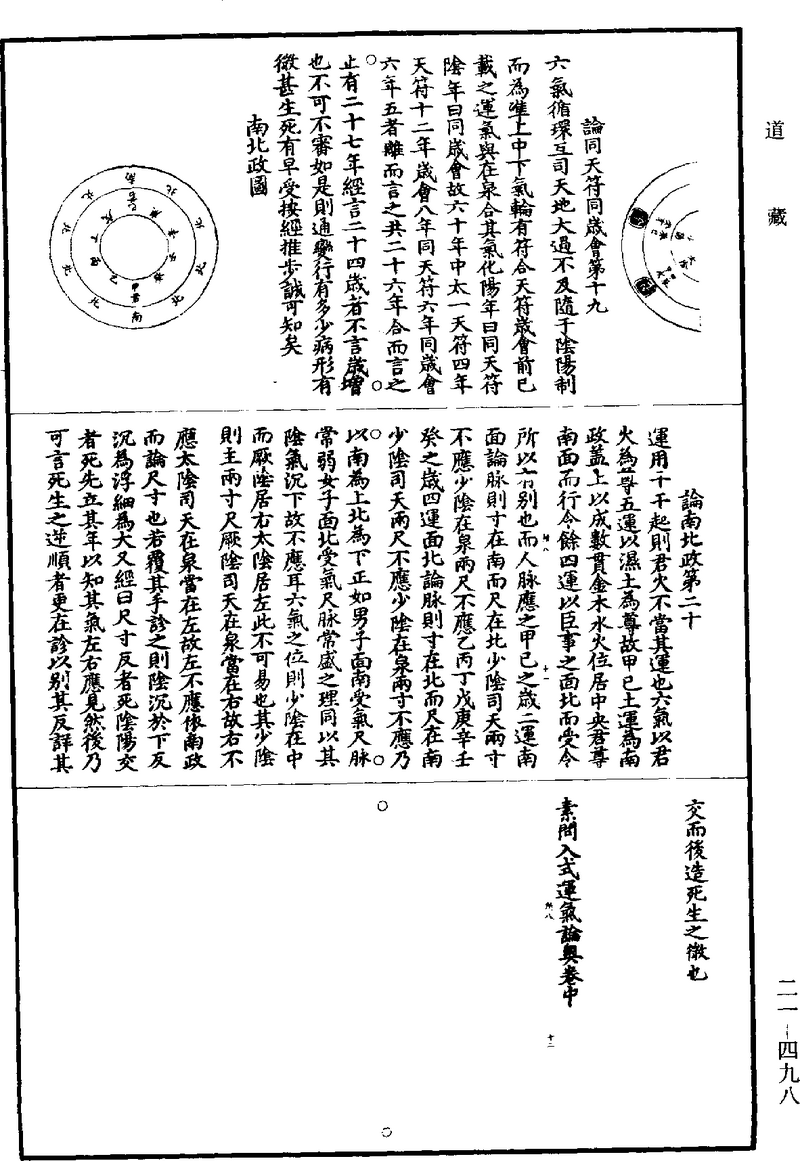 道藏
論同天符同歲會第十九
六氣循環互司天地太過不及隨于陰陽制
而為準上中下氣輪有符合天符歲會前已
載之運氣與在泉合其氣化陽年曰同天符
陰年曰同歲會故六十年中太一天符四年
天符十二年歲會八年同天符六年同歲會
六年五者離而言之共二十六年合而言之
止有二十七年經言二十四歲者不言歲會
也不可不審如是則通變行有多少病形有
徵甚生死有早受按經推步誠可知矣
南北政圖
論南北政第二十
運用十干起則君火不當其運也六氣以君
火為尊五運以濕土為尊故甲己土運為南
政蓋土以成數貫金木水火位居中央君尊
南面而行令餘四運以臣事之面北而受令
所以有別也而人脉應之甲己之歲二運南
面論脉則寸在南而尺在北少陰司天兩寸
不應少陰在泉兩尺不應乙丙丁戊庚辛壬
癸之歲四運面北論脉則寸在北而尺在南
少陰司天兩尺不應少陰在泉兩寸不應乃
以南為上北為下正如男子面南受氣尺脉
常弱女子面北受氣尺脉常盛之理同以其
陰氣沉下故不應耳六氣之位則少陰在中
而厥陰居右太陰居左此不可易也其少陰
則主兩寸尺厥陰司天在泉當在右故右不
應太陰司天在泉當在左故左不應依南政
而論尺寸也若覆其手診之則陰沉於下反
沉為浮細為大又經曰尺寸反者死陰陽交
者死先立其年以知其氣左右應見然後乃
可言死生之逆順者更在診以別其反詳其
交而後造死生之徵也
素問入式運氣論奧卷中
十二
二一—四九八